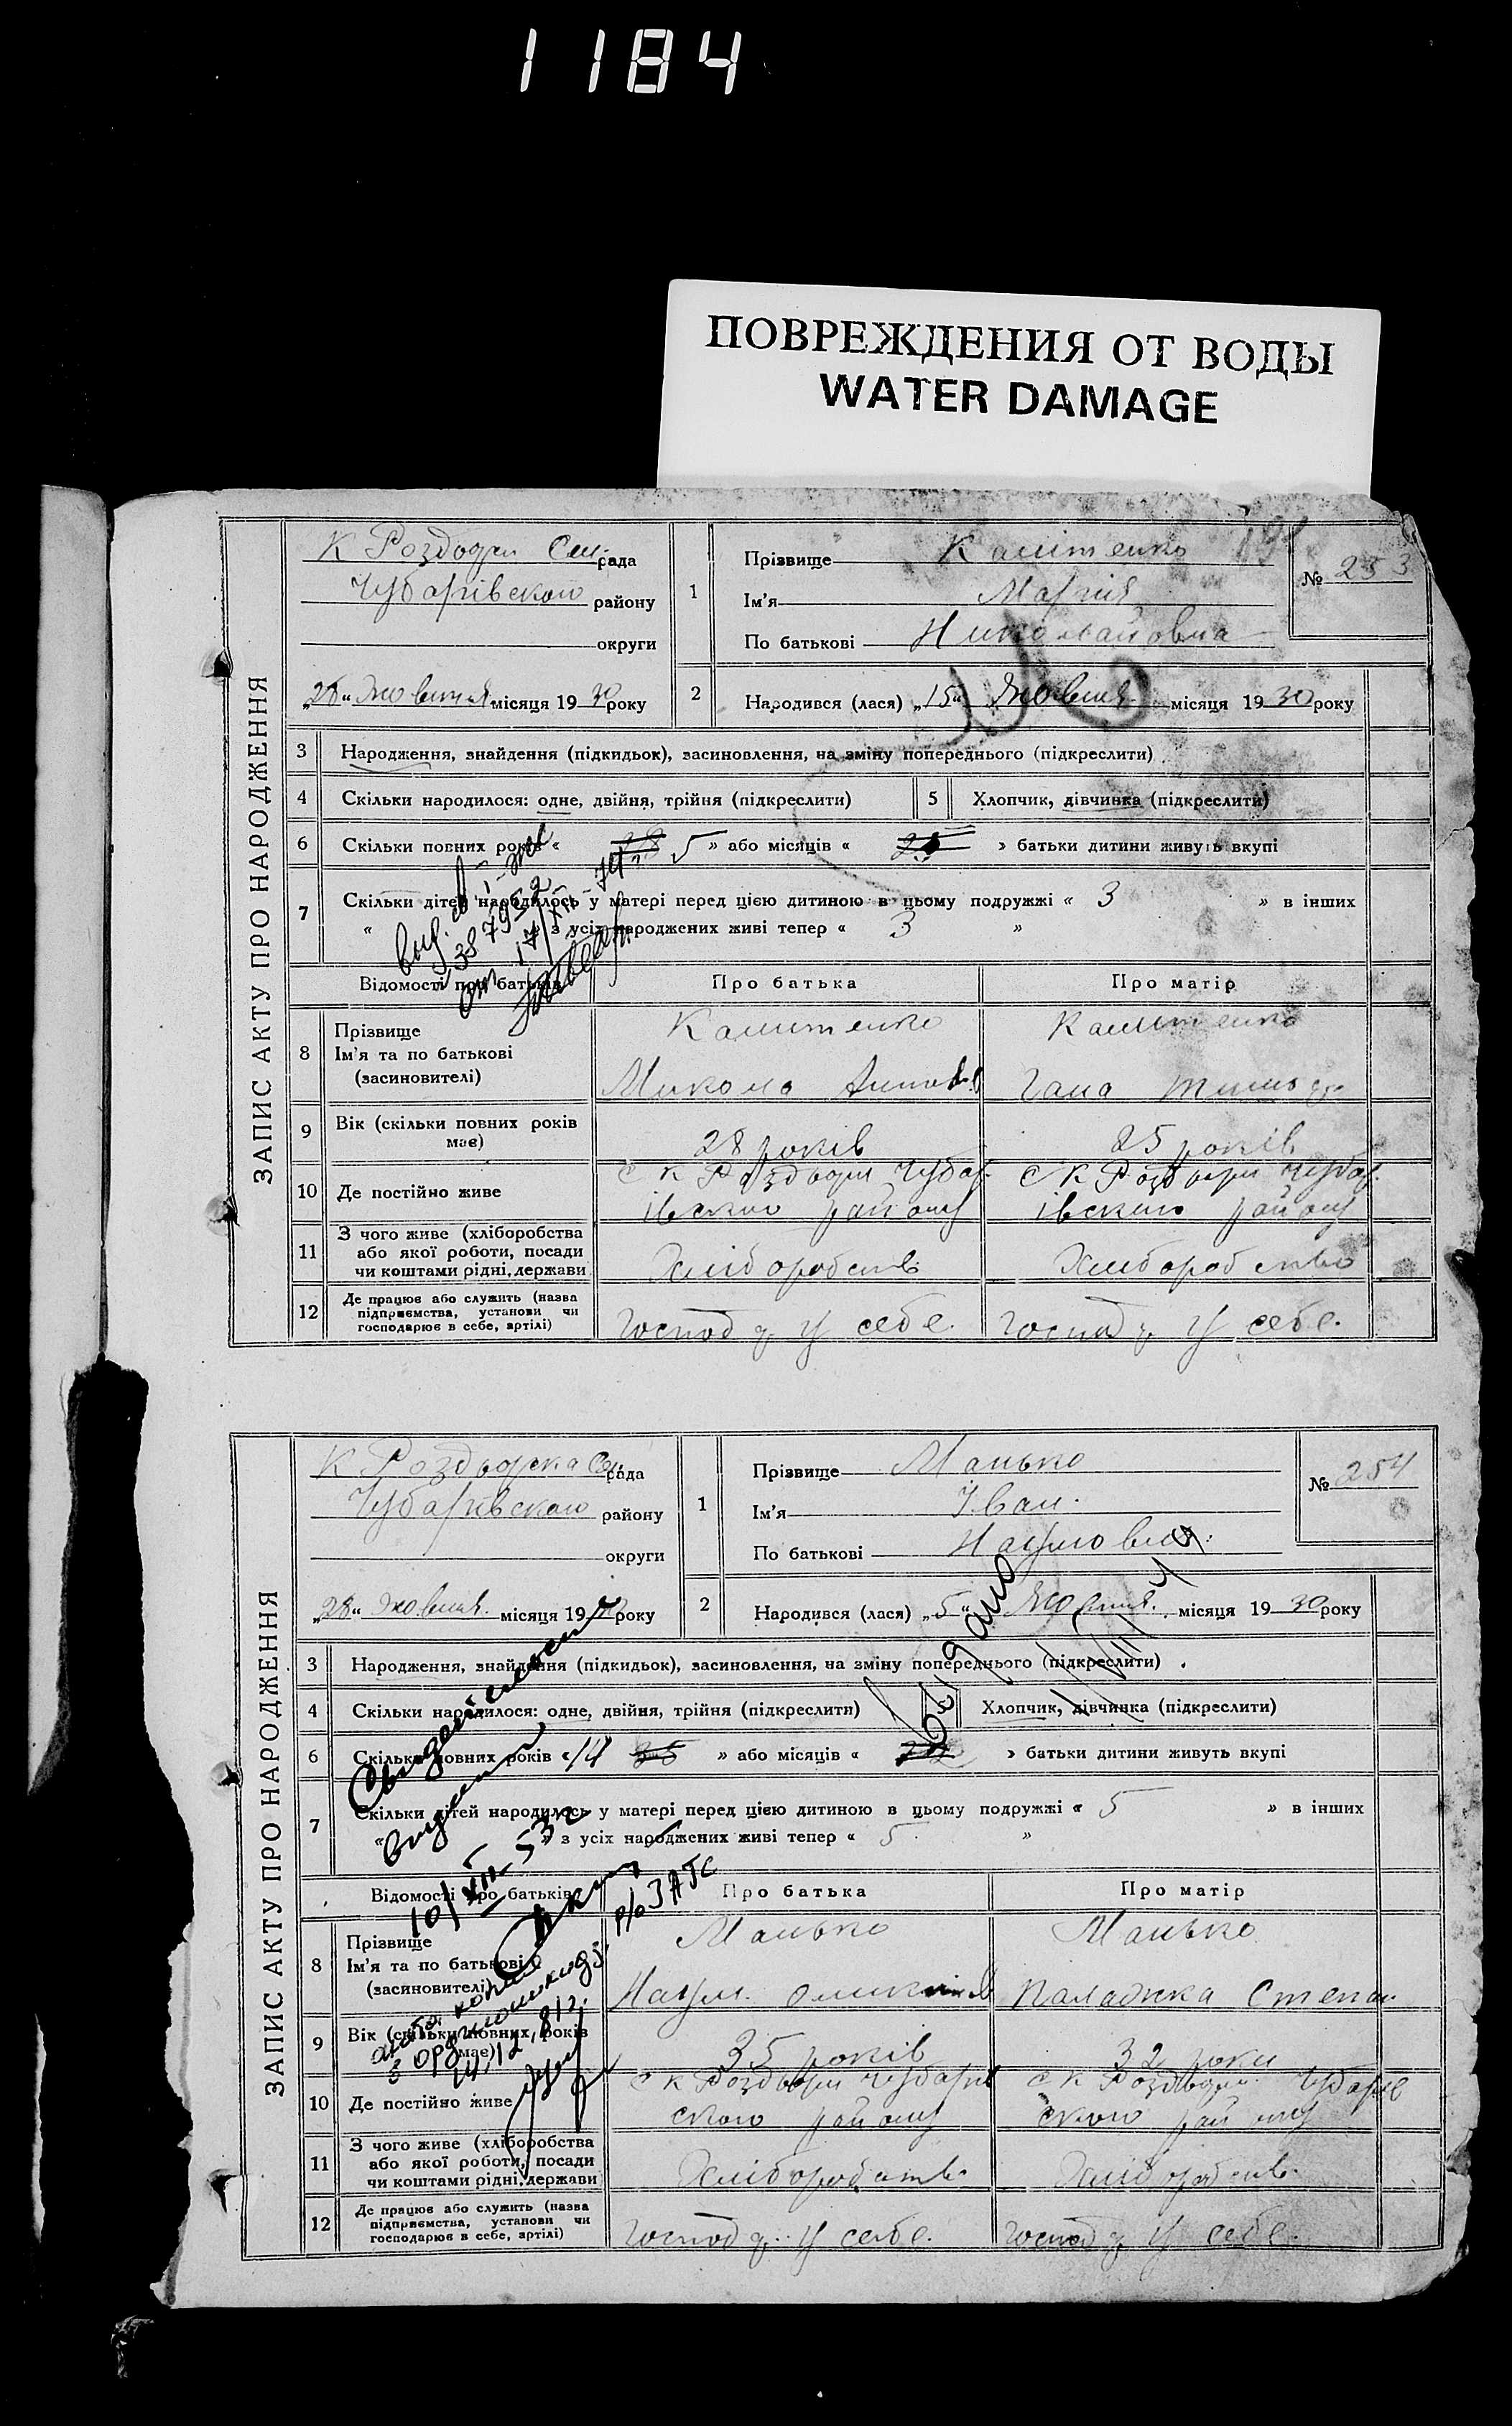 1184
ПОВРЕЖДЕНИЯ ОТ ВОДЫ
WATER DAMAGE
ЗАПИС АКТУ ПРО НАРОДЖЕННЯ
К Роздори Сіл. рада
Чубарівского району
округи
„28“ Жовтня місяця 1930 року
1
Прізвище Калітенко
Ім'я Марія
По батькові Николайовна
№ 253
2
Народився (лася) „15“ Жовтня місяця 1930 року
3 Народження, знайдення (підкидьок), засиновлення, на зміну попереднього (підкреслити)
4 Скільки народилося: одне, двійня, трійня (підкреслити)
5 Хлопчик, дівчинка (підкреслити)
6 Скільки повних років « 28 5 » або місяців « 25 » батьки дитини живуть вкупі
7 Скільки дітей народилось у матері перед цією дитиною в цьому подружжі « 3 » в інших
« » з усіх народжених живі тепер « 3 »
Відомості про батьків
Про батька
Про матір
8 Прізвище
Ім'я та по батькові
(засиновителі)
Калитенко
Микола
Калитенко
Гана
9 Вік (скільки повних років має)
28 років
25 років
10 Де постійно живе
с К Роздори Чубар
івского району
с К Роздори Чубар.
івского району
11 З чого живе (хліборобства
або якої роботи, посади
чи коштами рідні, держави
Хліборобств
Хліборобство
12 Де працює або служить (назва
підприємства, установи чи
господарює в себе, артілі)
Господ у себе.
Господ у себе.
ЗАПИС АКТУ ПРО НАРОДЖЕННЯ
К Роздорска Сіл. рада
Чубарівского району
округи
„28“ Жовтня місяця 1930 року
1
Прізвище Манько
Ім'я Іван.
По батькові Наумович
№ 254
2
Народився (лася) „5“ Жовтня місяця 1930 року
3 Народження, знайдення (підкидьок), засиновлення, на зміну попереднього (підкреслити)
4 Скільки народилося: одне, двійня, трійня (підкреслити)
5 Хлопчик, дівчинка (підкреслити)
6 Скільки повних років « 14 35 » або місяців « » батьки дитини живуть вкупі
7 Скільки дітей народилось у матері перед цією дитиною в цьому подружжі « 5 » в інших
« » з усіх народжених живі тепер « 5 »
Відомості про батьків
Про батька
Про матір
8 Прізвище
Ім'я та по батькові
(засиновителі)
Манько
Наум.
Манько
Палажка Степан
9 Вік (скільки повних років має)
35 років
32 роки
10 Де постійно живе
с К Роздори Чубарів
ского району
с К Роздори Чубарів
ского району
11 З чого живе (хліборобства
або якої роботи, посади
чи коштами рідні, держави
Хліборобств.
Хліборобств.
12 Де працює або служить (назва
підприємства, установи чи
господарює в себе, артілі)
Господ у себе.
Господ у себе.